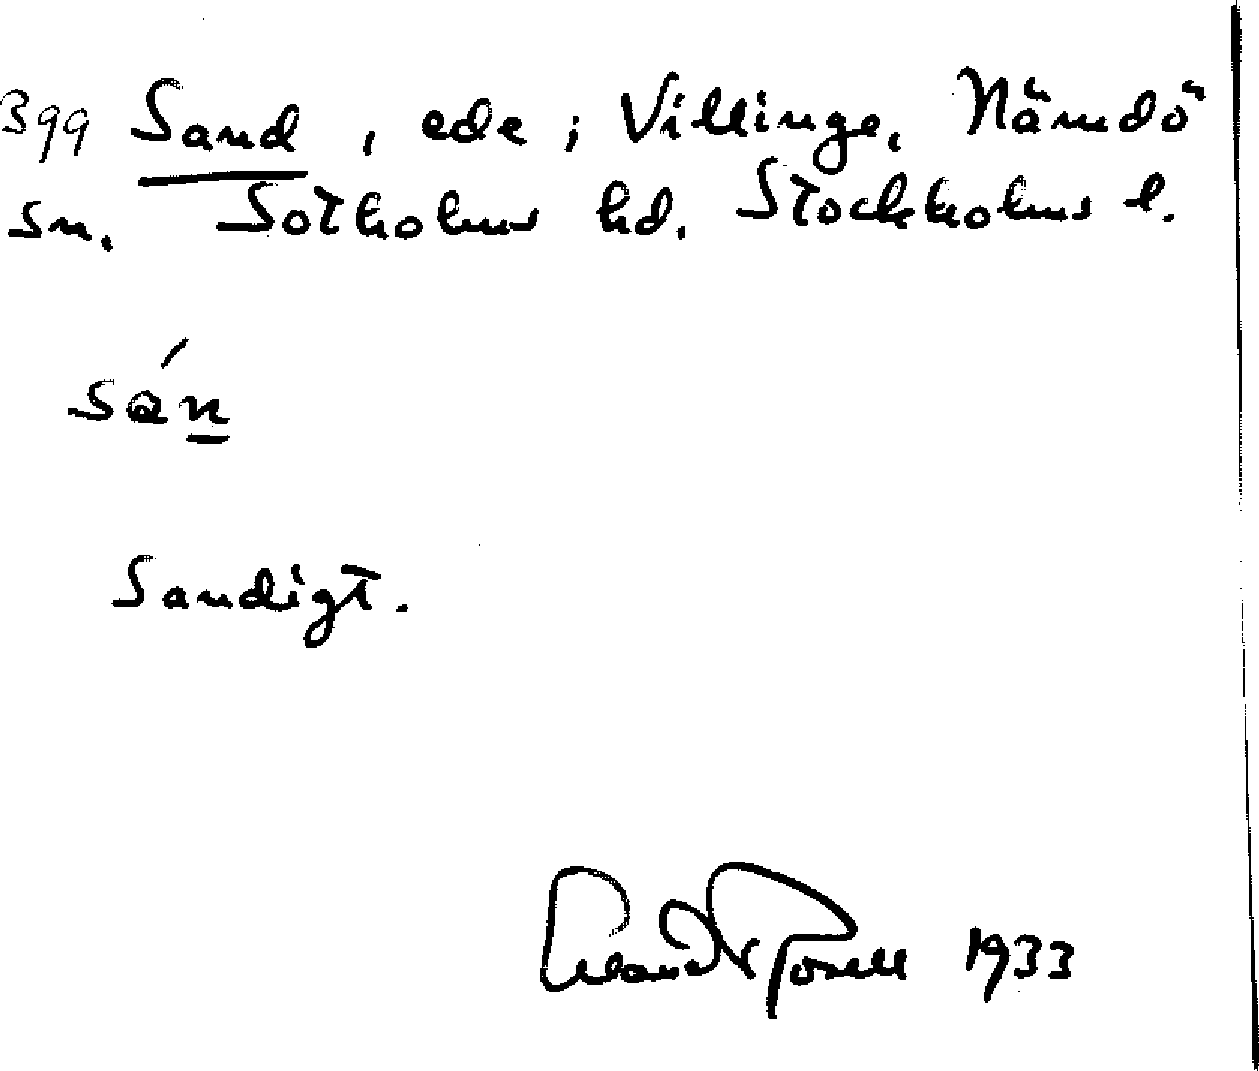 399 Sand, ede; Villinge, Nämdö
sn. Sotholms hd. Stockholms l.
sán
Sandigt.
Erland Rosell 1933